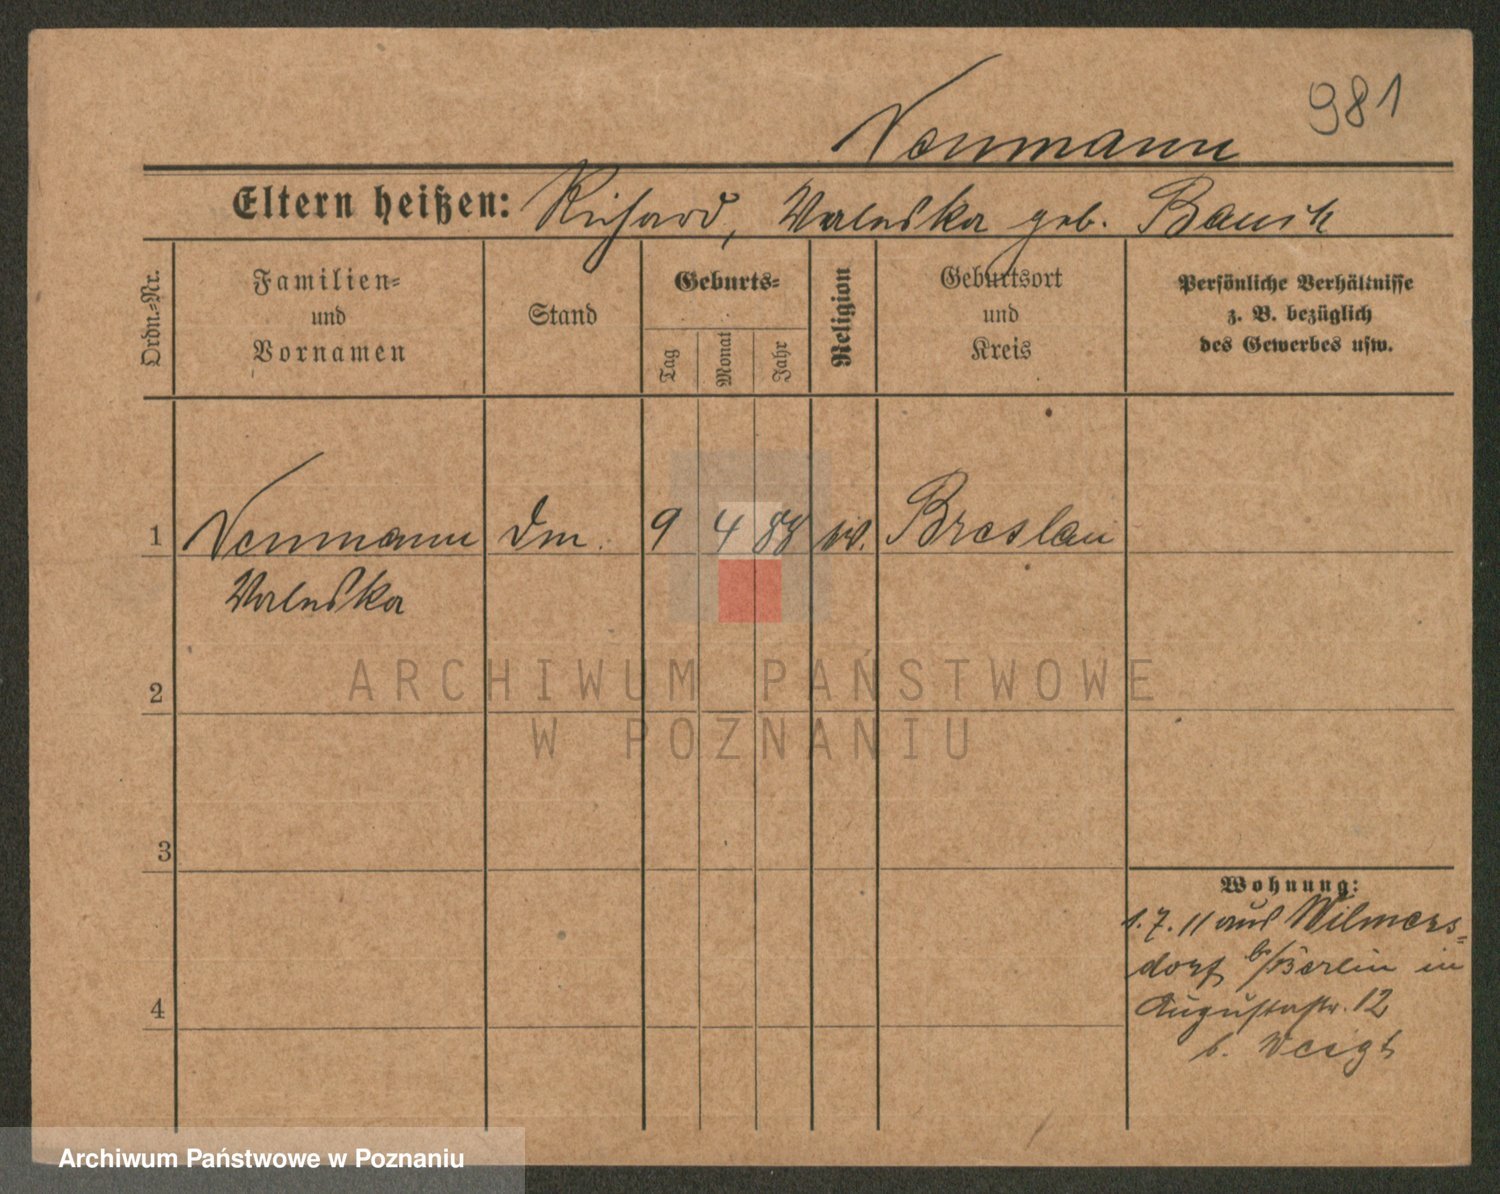 981
Neumann
Eltern heißen: Richard, Valeska geb.
Ordn.-Nr.
Familien- und Vornamen
Stand
Geburts-
Tag
Monat
Jahr
Religion
Geburtsort und Kreis
Persönliche Verhältnisse
z. B. bezüglich
des Gewerbes usw.
1 Neumann 9 4 88 Breslau
Valeska
2
3
4
Wohnung:
1.7.11 aus Wilmers-
dorf b/Berlin in
Augustastr. 12
b. Voigt
ARCHIWUM PAŃSTWOWE
W POZNANIU
Archiwum Państwowe w Poznaniu